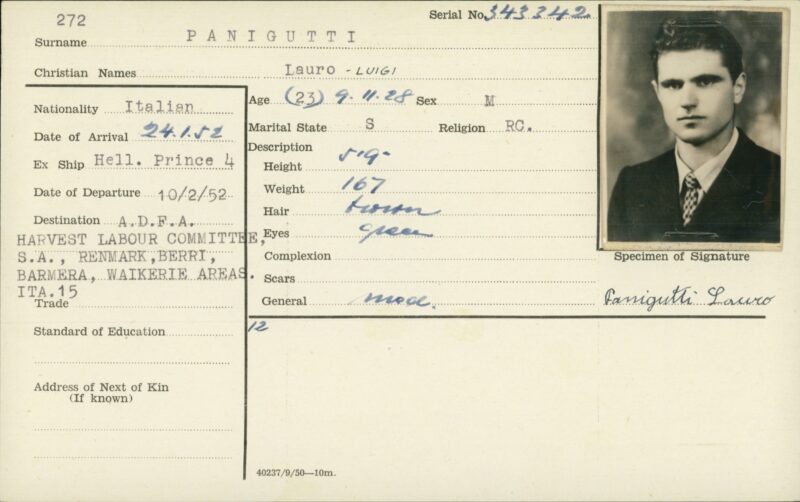 272
Serial No. 343342
Surname PANIGUTTI
Christian Names Lauro - LUIGI
Nationality Italian
Age (23) 9.11.28 Sex M
Date of Arrival 24.1.52
Marital State S Religion RC.
Description
Ex Ship Hell. Prince 4
Height 5'9"
Date of Departure 10/2/52
Weight 167
Destination A.D.F.A.
Hair brown
HARVEST LABOUR COMMITTEE,
Eyes green
S.A., RENMARK,BERRI,
Complexion
Specimen of Signature
BARMERA, WAIKERIE AREAS.
Scars
ITA.15
Trade
General mod.
Panigutti Lauro
Standard of Education
12
Address of Next of Kin
(If known)
40237/9/50—10m.